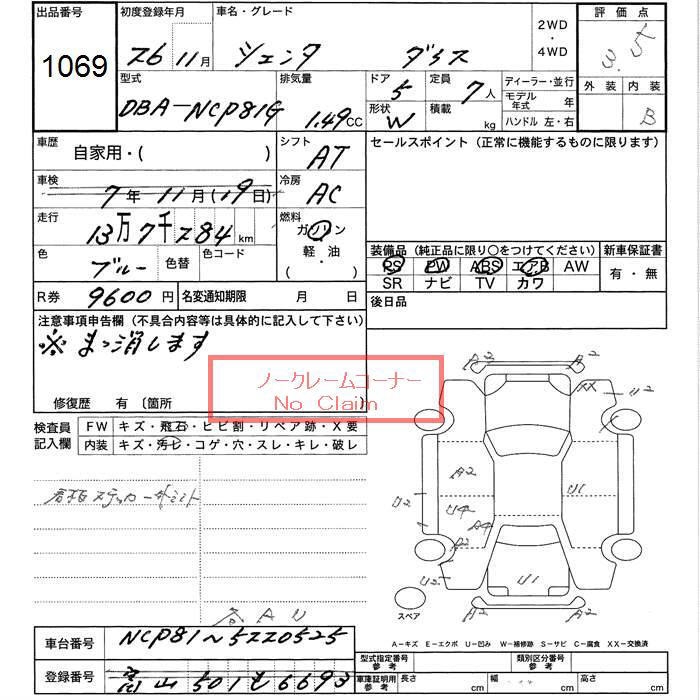 出品番号 初度登録年月 車名・グレード 2WD・4WD 評価点
1069 26 11月 シエンタ ダイス 3.5
型式 排気量 ドア 定員 ディーラー・並行 外装 内装
DBA-NCP81G 1.49CC 5 7人 モデル年式 年 B
形状 W 積載 kg ハンドル 左・右
車歴 自家用・( ) シフト AT セールスポイント (正常に機能するものに限ります)
車検 7年11月(19日) 冷房 AC
走行 13万7千284km 燃料 ガソリン
軽・油
( )
色 ブルー 色替 色コード
装備品 (純正品に限り○をつけてください) 新車保証書
PS PW ABS エアB AW 有・無
SR ナビ TV カワ
R券 9600円 名変通知期限 月 日 後日品
注意事項申告欄 (不具合内容等は具体的に記入して下さい)
※まっ消します
ノークレームコーナー
No Claim
修復歴 有 〔箇所
検査員記入欄 FW キズ・飛石・ヒビ割・リペア跡・X要
内装 キズ・汚レ・コゲ・穴・スレ・キレ・破レ
A2 A2
XX U1
A2
U2 U4 U1
A4
A2
U2 U1
スペア
A-キズ E-エクボ U-凹み W-補修跡 S-サビ C-腐食 XX-交換済
車台番号 NCP81~5220525
登録番号 富山 501 も 6693
型式指定番号 参考 類別区分番号 参考
車庫証明用 参考 長さ cm 幅 cm 高さ cm